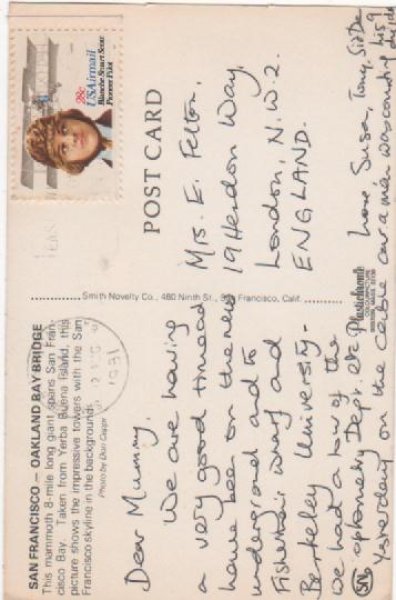 SAN FRANCISCO — OAKLAND BAY BRIDGE
This mammoth 8-mile long giant spans San Fran-
cisco Bay. Taken from Yerba Buena Island, this
picture shows the impressive towers with the San
Francisco skyline in the background.
Photo by Don Cuppe
1981
Dear Mummy
We are having
a very good time and
have been on the new
underground and to
Fishermans wharf and
Berkeley University -
we had a tour of the
optometry Dept. etc
Yesterday on the cable car a man was counting his 9
Love Susan, Tony,
Smith Novelty Co., 480 Ninth St., San Francisco, Calif.
Plastichrome
COLOURPICTURE
BOSTON, MASS. 02130
POST CARD
28c
USAirmail
Blanche Stuart Scott
Pioneer Pilot
Mrs. E. Felton,
19 Hendon Way,
London, N.W.2.
ENGLAND.